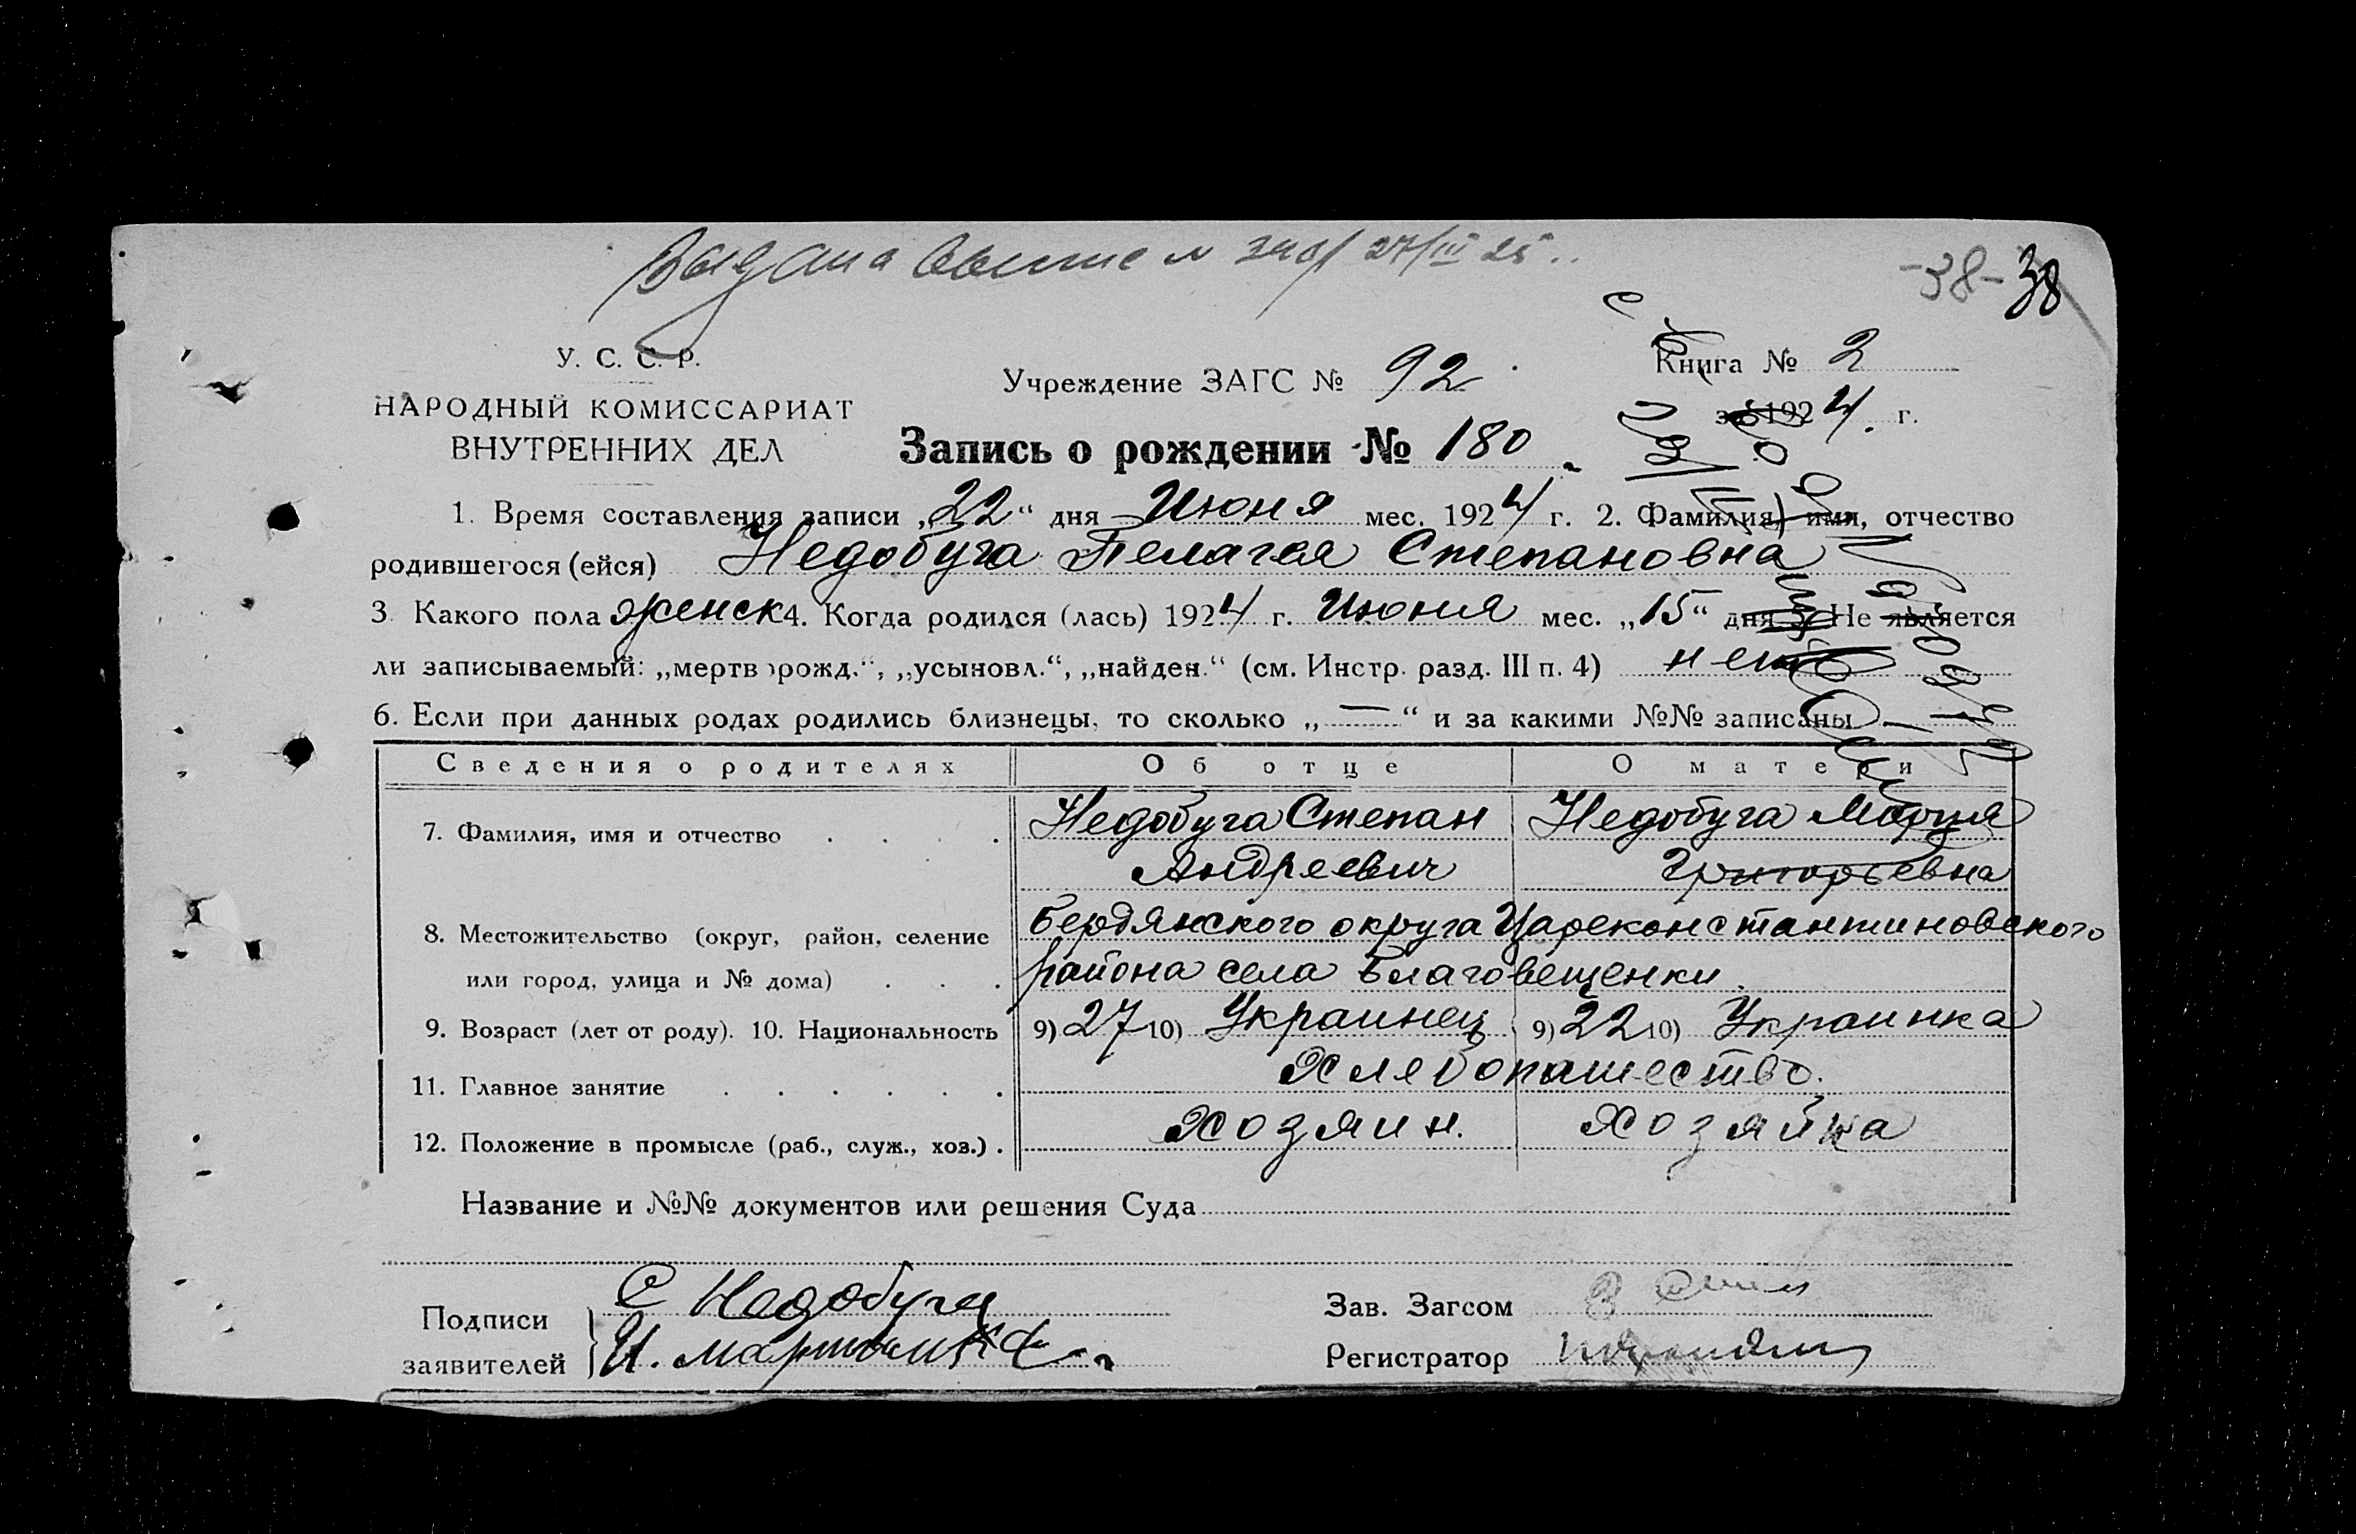 Выдана 27/III 25
-38- 38
У. С. С. Р.
НАРОДНЫЙ КОМИССАРИАТ
ВНУТРЕННИХ ДЕЛ
Учреждение ЗАГС № 92
Книга № 2
за 1924 г.
Запись о рождении № 180
1. Время составления записи „22“ дня Июня мес. 1924 г. 2. Фамилия, имя, отчество
родившегося (ейся) Недобуга Пелагея Степановна
3 Какого пола женск 4. Когда родился (лась) 1924 г. Июня мес. „15“ дня 5. Не является
ли записываемый: „мертворожд.“, „усыновл.“, „найден.“ (см. Инстр. разд. III п. 4) нет
6. Если при данных родах родились близнецы, то сколько „—“ и за какими №№ записаны —
Сведения о родителях Об отце О матери
7. Фамилия, имя и отчество . . . . Недобуга Степан Недобуга Мария
Андреевич Григорьевна
8. Местожительство (округ, район, селение Бердянского округа Цареконстантиновского
или город, улица и № дома) . . . района села Благовещенки.
9. Возраст (лет от роду). 10. Национальность 9) 27 10) Украинец 9) 22 10) Украинка
11. Главное занятие . . . . . . Хлебопашество.
12. Положение в промысле (раб., служ., хоз.) . хозяин. хозяйка
Название и №№ документов или решения Суда
Подписи
заявителей
С Недобуга
И.
Зав. Загсом
Регистратор